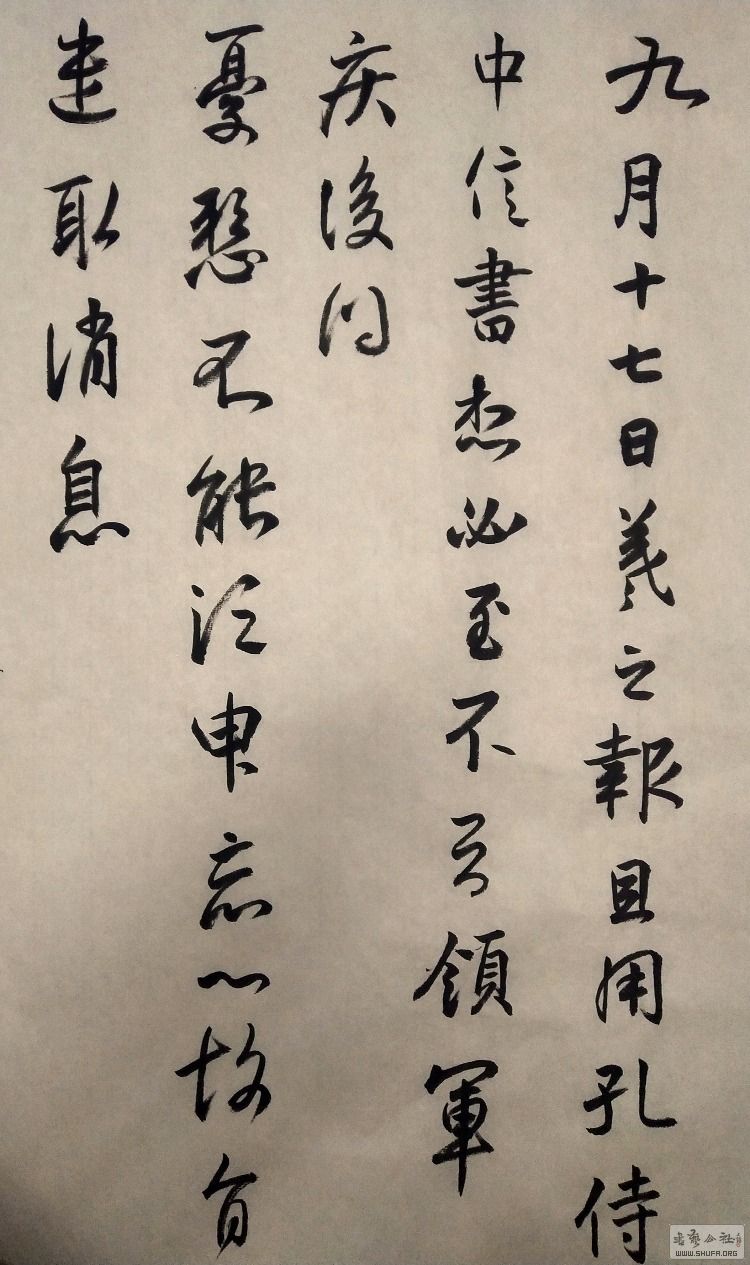 九月十七日羲之報且因孔侍
中信書想必至不知領軍
疾後問
憂懸不能須臾忘心故旨
遣取消息
书艺公社
WWW.SHUFA.ORG